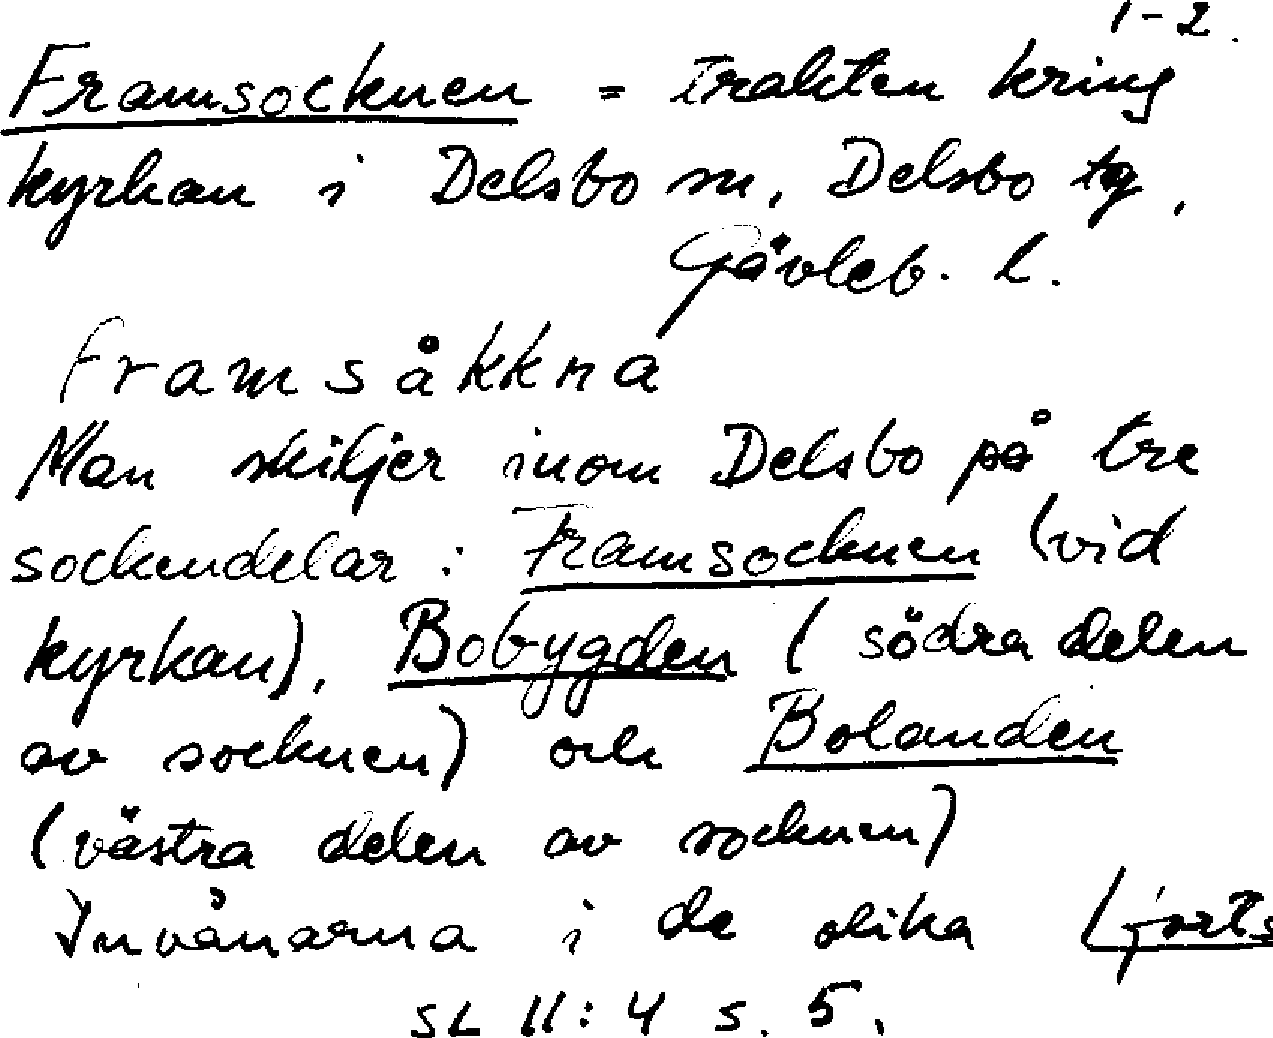 1-2.
Framsocknen = trakten kring
kyrkan i Delsbo sn, Delsbo tg,
Gävleb. l.
framsåkkna
Man skiljer inom Delsbo på tre
sockendelar : Framsocknen (vid
kyrkan), Bobygden ( södra delen
av socknen) och Bolanden
(västra delen av socknen)
Invånarna i de olika (forts
SL 11:4 s. 5.